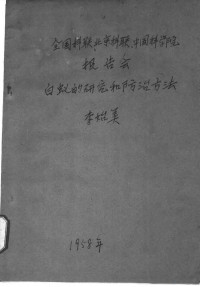 全国科联北京科联、中国科学院
报告会
白蚁的研究和防治方法
李始美
1958年